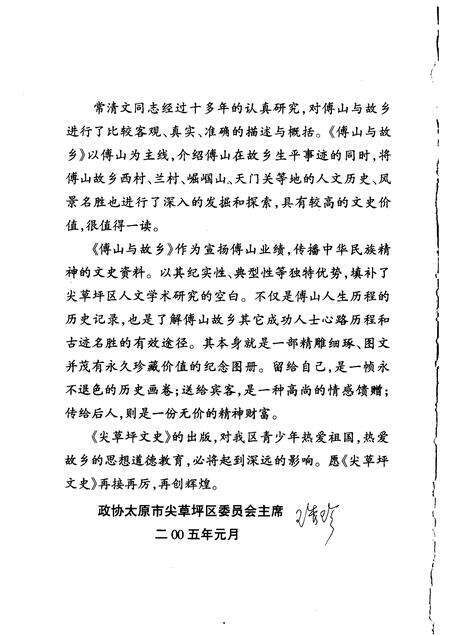 常清文同志经过十多年的认真研究，对傅山与故乡
进行了比较客观、真实、准确的描述与概括。《傅山与故
乡》以傅山为主线，介绍傅山在故乡生平事迹的同时，将
傅山故乡西村、兰村、崛㟮山、天门关等地的人文历史、风
景名胜也进行了深入的发掘和探索，具有较高的文史价
值，很值得一读。
《傅山与故乡》作为宣扬傅山业绩，传播中华民族精
神的文史资料。以其纪实性、典型性等独特优势，填补了
尖草坪区人文学术研究的空白。不仅是傅山人生历程的
历史记录，也是了解傅山故乡其它成功人士心路历程和
古迹名胜的有效途径。其本身就是一部精雕细琢、图文
并茂有永久珍藏价值的纪念图册。留给自己，是一帧永
不退色的历史画卷；送给宾客，是一种高尚的情感馈赠；
传给后人，则是一份无价的精神财富。
《尖草坪文史》的出版，对我区青少年热爱祖国，热爱
故乡的思想道德教育，必将起到深远的影响。愿《尖草坪
文史》再接再厉，再创辉煌。
政协太原市尖草坪区委员会主席
二00五年元月